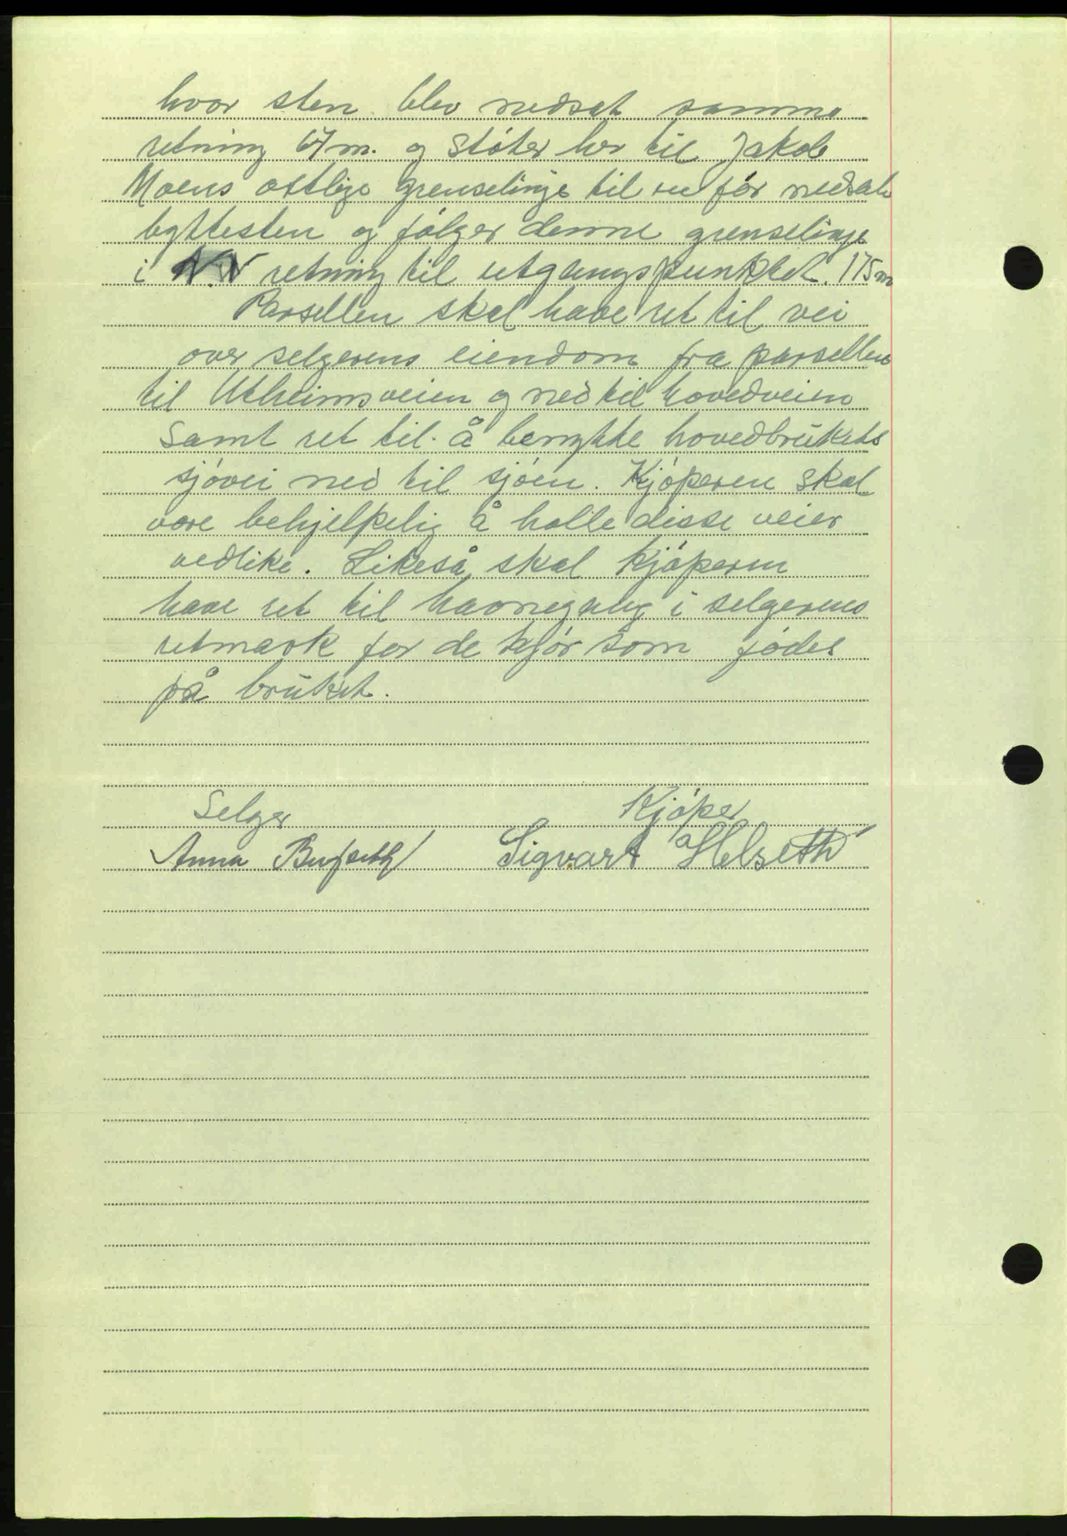 hvor sten blev nedsat samme
retning 67 m. og støter her til Jakob
Moens østlige grenselinje til en før nedsat
byttesten og følger denne grenselinje
i N.V retning til utgangspunktet. 175 m
Parsellen skal have ret til vei
over selgerens eiendom fra parsellen
til Utheimsveien og ned til hovedveien
samt ret til å benytte hovedbrukets
sjøvei ned til sjøen. Kjøperen skal
være behjelpelig å holle disse veier
vedlike. Likeså skal kjøperen
have ret til havnegang i selgerens
utmark for de kjør som fødes
på bruket.
Selger Kjøper
Anna Sigvart Helseth